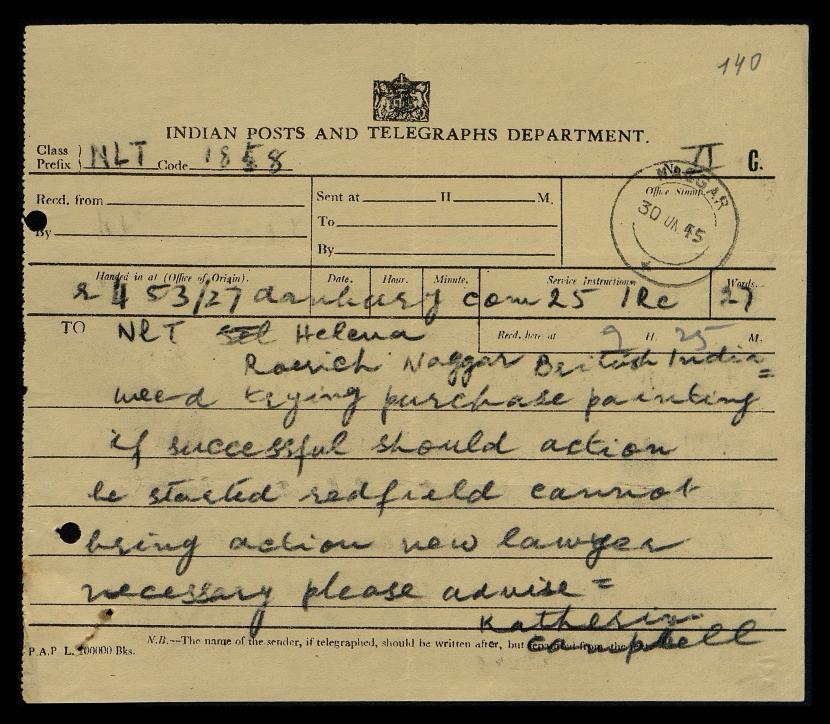 140
INDIAN POSTS AND TELEGRAPHS DEPARTMENT.
Class Prefix } NLT Code 1858 II C.
Recd. from Sent at H M. Office Stamp
By To NAGGAR
By 30 JA 45
Handed in at (Office of Origin). Date. Hour. Minute. Service Instructions. Words.
r 4 53/27 danbury com 25 1Rc 27
TO NLT Helena Recd. here at 9 H. 25 M.
Roerich Naggar British India =
weed trying purchase painting
if successful should action
be started redfield cannot
bring action new lawyer
necessary please advise =
Katherin
Campbell
N.B.—The name of the sender, if telegraphed, should be written after, but separated from the text.
P.A.P L. 200000 Bks.